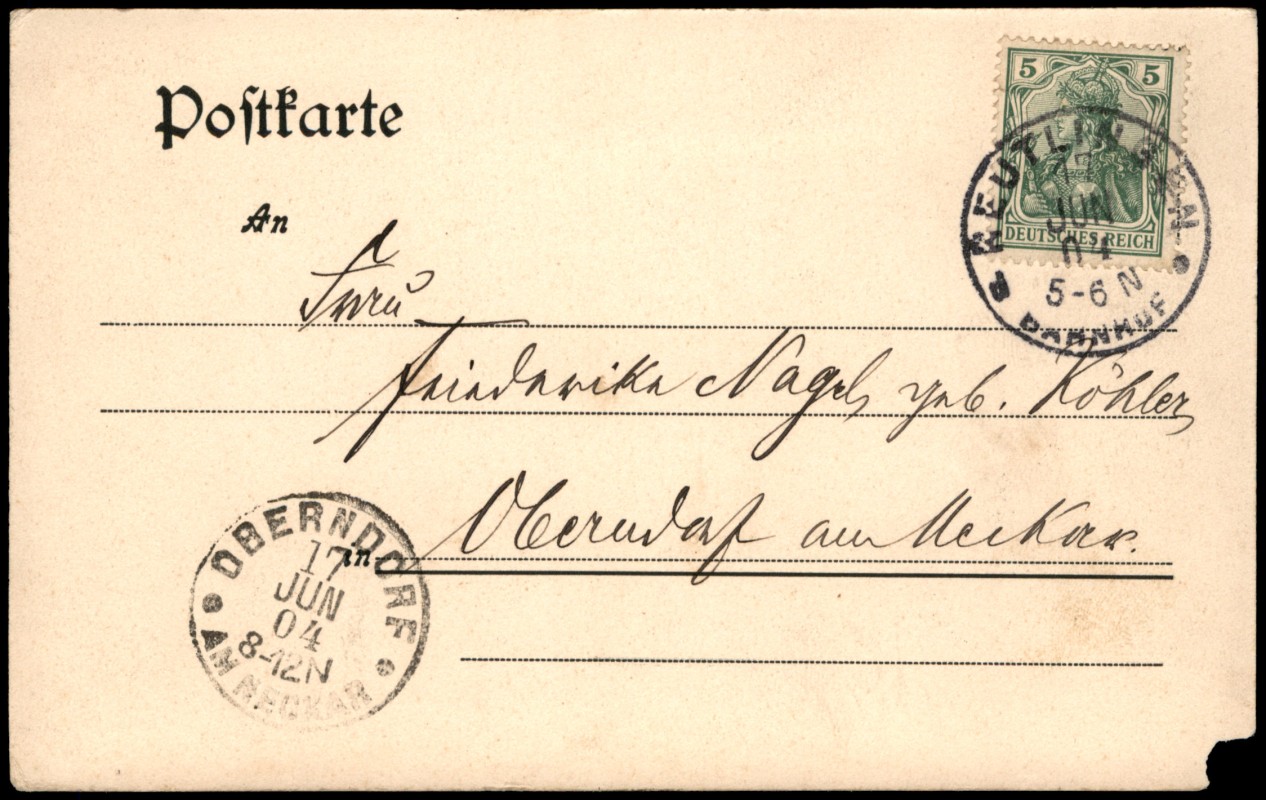 Postkarte
5 5
DEUTSCHES REICH
REUTLINGEN
17
JUN
04
5-6 N
BAHNHOF
An
Frau
Friederike Nagel geb. Köhler
in Oberndorf am Neckar.
OBERNDORF
17
JUN
04
8-12N
AM NECKAR